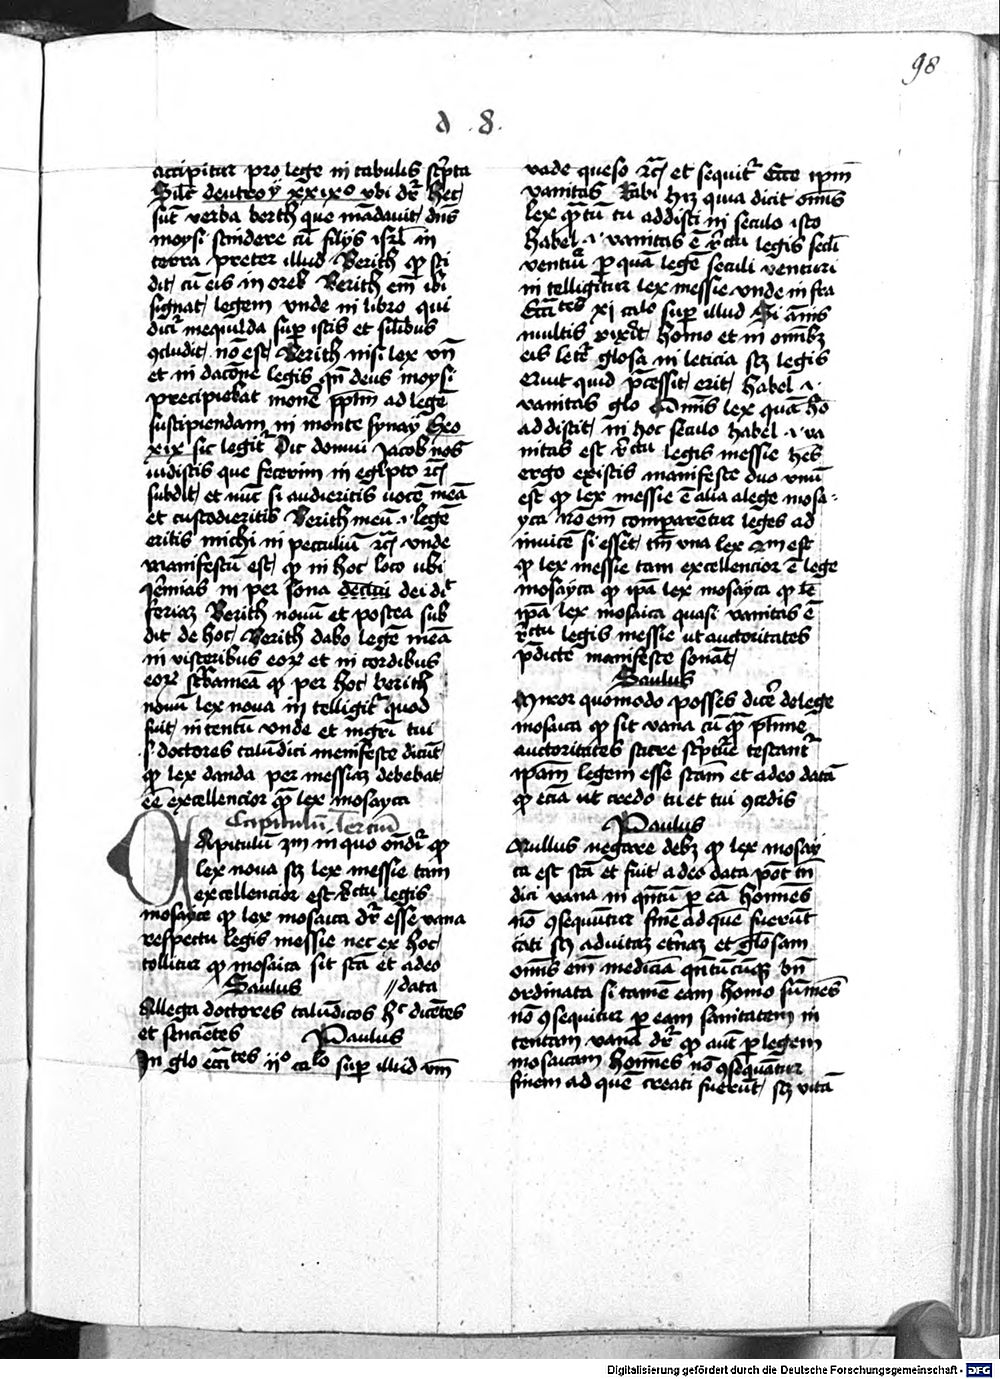 98
d . 8.
accipitur pro lege in tabulis sc̄pta
Silꝛ deutroȳ xxixº vbi dr̄ hec
sūt verba berith que mādauit dn̄s
moysi scindere cū filijs isrl̄ in
terra preter illud Berith qꝫ sci
dit cū eis in oreb Berith em̄ ibi
signat legem vnde in libro qui
dicr̄ meqiulda sup̄ istis et silibus
ꝯcludit nō est Berith nisi lex vn̄
et in dacōne legis qn̄ deus moysi
precipiebat monē pplm̄ ad legē
suscipiendam in monte synay Exo
xix sic legitr̄ Dic domui Jacob nos
uidistis que fecerim in egipto ⁊c̄
subdit et nūc si audieritis uocē meā
et custodieritis Berith meū .i. legē
eritis michi in peculiū ⁊c̄ vnde
manifestū est qꝫ in hoc loco ubi
Jermias in per sona dei dic̄
feriaꝫ Berith nouū et postea sub
dit de hoc Berith dabo legē meā
in visceribus eoꝝ et in cordibus
eoꝝ sc̄bam eā qꝫ per hoc berith
nouū lex noua in telligitr̄ quod
fuit in tentū vnde et mgr̄i tui
.s. doctores talūdici menifeste dicūt
qꝫ lex danda per messiaꝫ debebat
eē excellencior qꝫ lex mosayca
Capitulū Terciū
Capitulū 3m in quo ondr̄ qꝫ
lex noua sꝫ lex messie tam
excellencior est r̄ctu legis
mosayce qꝫ lex mosaica dr̄ esse vana
respectu legis messie nec ex hoc
tollitur qꝫ mosaica sit scā et a deo
Saulus //data
Allega doctores talūdicos hc̄ dicētes
et sencientes Paulus
In glo eccītes ijº calo sup̄ illud vm̄
vade queso ⁊c̄ et sequitr̄ Ecce ipm̄
vanitas Rabi hiꝫ quia dicit om̄is
lex qꝫtū tu addisti in seculo isto
habel .i. vanitas ē r̄ctu legis seclī
ventiu᷑ p̄ quā legē seculi venturi
in telligitur lex messie vnde in fra
Eccītes xj calo sup̄ illud Si ānis
multis vixit homo et in omībꝫ
eis letet᷑ glosa in leticia sꝫ legis
eruit quid p̄cessit erit habel .i.
vanitas glo Om̄is lex quā hō
addiscit in hoc seculo habel .i. va
nitas est r̄ctu legis messie hēs
ergo ex istis manifeste duo vnū
est qꝫ lex messie ē alia a lege mosa-
yca nō em̄ comparētur leges ad
inuicē si esset tm̄ vna lex 2m est
qꝫ lex messie tam excellencior ē lege
mosayca qꝫ ipā lex mosayca qꝫ lꝫ
ipā lex mosaica quasi vanitas ē
r̄ctu legis messie ut auctoritates
p̄dicte manifeste sonāt
Saulus
Miror quomodo posses dicē de lege
mosaica qꝫ sit vana cū qꝫ pl̄ime
auctoritates sacre sc̄ptu᷑e testant᷑
ipam̄ legem esse scām et a deo datā
qꝫ eciā ut credo tu et tui ꝯcedis
Paulus
Nullus negare debꝫ qꝫ lex mosay
ca est scā et fuit a deo data pōt tn̄
dici vana in qꝫtū p̄ eā homines
nō ꝯsequūtur finē ad quē fuerūt
cati sꝫ ad vitaꝫ et̄naꝫ et glosam
om̄is em̄ medicīa qꝫtūcūqꝫ bn̄
ordinata si tamē eam homo sumēs
nō ꝯsequitur p̄ eam sanitatem in
tentam vana dr̄ qꝫ aūt p̄ legem
mosaicam homines nō ꝯsequātur
finem ad quē creati fuerūt sꝫ vitā
Digitalisierung gefördert durch die Deutsche Forschungsgemeinschaft - DFG